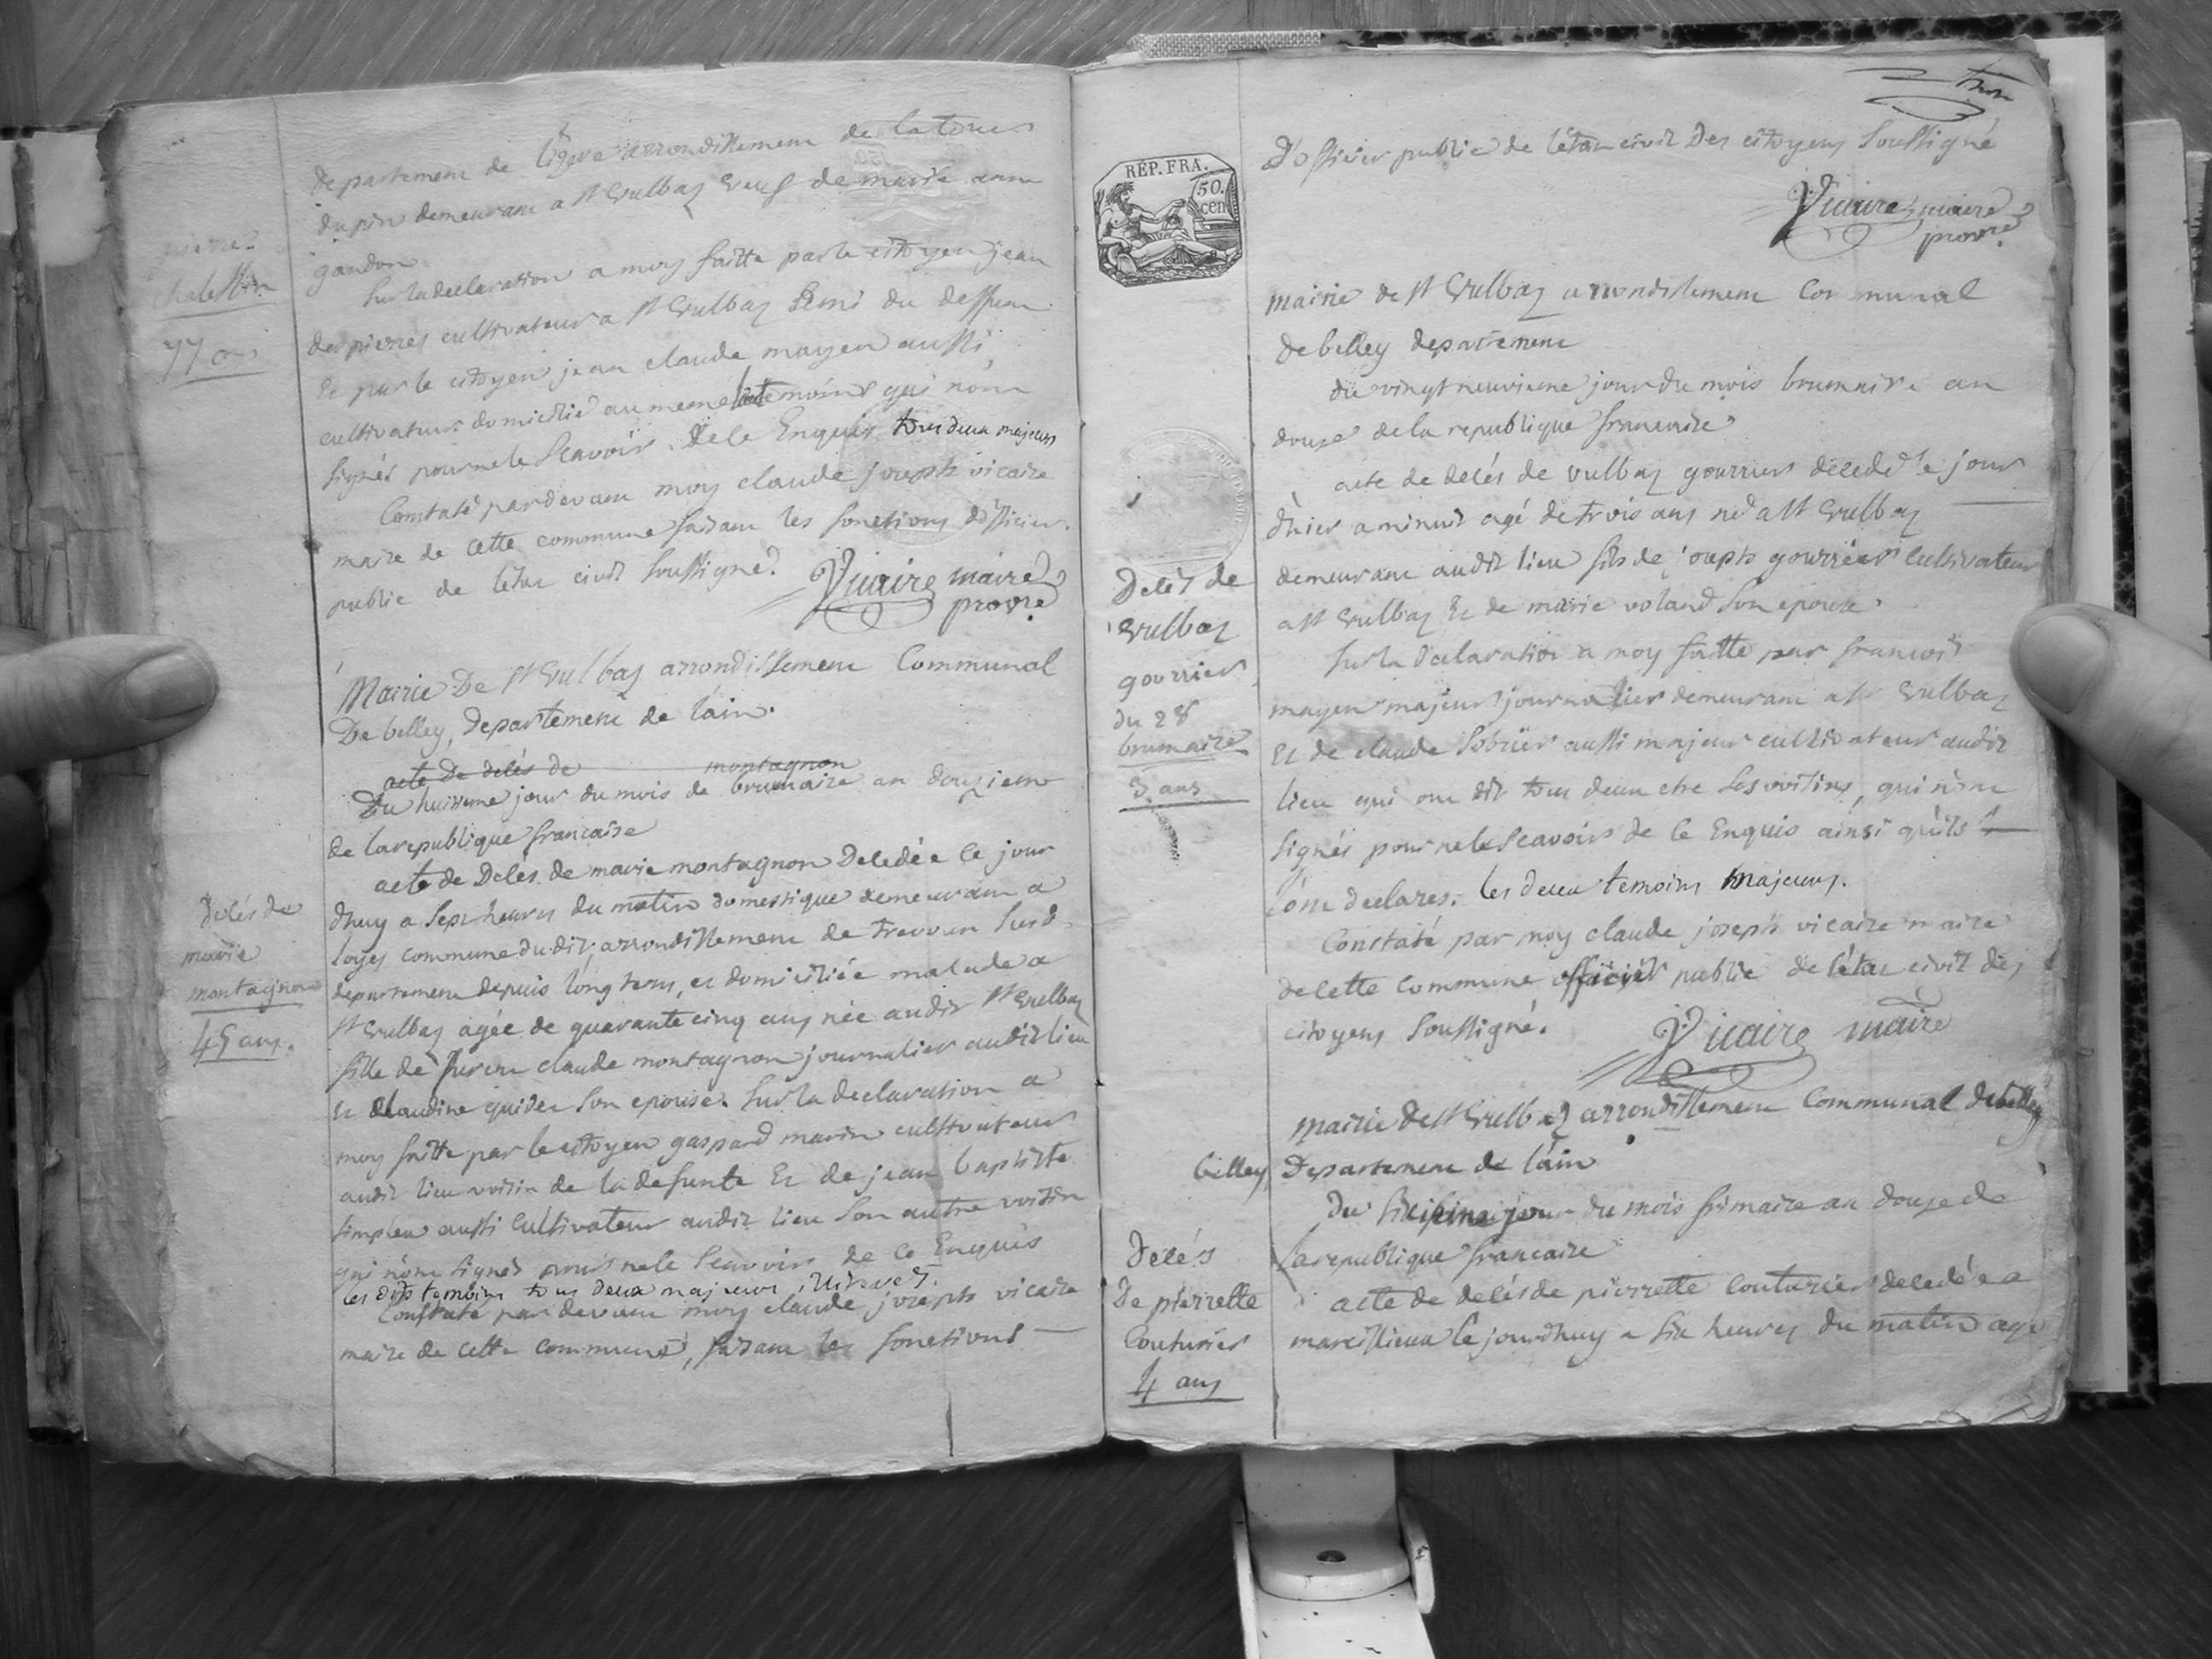 departement de lisere arrondissement de latour
dupin demeurant a st Vulbas veuf de marie anne
gandon
pierre
chalessin
77 ans
Sur la declaration a moy faitte par le citoyen jean
des pierres cultivateur a st Vulbas ami du deffunt
Et par le citoyen jean claude mayen aussi
cultivateur domicilié au meme lieu temoins qui nont
signés pour ne le scavoir de ce Enquis tous deux majeurs
Constaté pardevant moy claude joseph vicaire
maire de cette commune faisant les fonctions dofficier
public de letat civil soussigné.
Vicaire maire
provre
Mairie De st Vulbas arrondissement Communal
De belley, departement de lain.
acte de delés de montagnon
Du huitieme jour du mois de brumaire an douzieme
de la republique francaise
acte de Delés de marie montagnon Deledée le jour
Delés de
marie
montagnon
45 ans.
dhuy a sept heures du matin domestique demeurant a
loyes commune dudit arrondissement de trevoux susd
departement depuis long tems, et domiciliée malade a
st Vulbas agée de quarante cinq ans née audit st Vulbas
fille de claude montagnon journalier audit lieu
Et claudine guider son epouse. Sur la declaration a
moy faitte par le citoyen gaspard marin cultivateur
audit lieu voisin de la defunte Et de jean baptiste
simplex aussi cultivateur audit lieu son autre voisin
qui nont signés pour ne le scavoir de ce Enquis
les dits temoins tous deux majeurs
Constaté par devant moy claude joseph vicaire
maire de cette commune, faisant les fonctions
RÉP. FRA.
50.
cen
D'officier public de létat civil des citoyens soussigné
Vicaire maire
provre
mairie de st Vulbas arrondissement Communal
de belley departement
du vingt neuvieme jour du mois brumaire an
douze de la republique francaise
acte de delés de vulbas gourrier deledé le jour
d'hier a minuit agé de trois ans né a st Vulbas
Delés de
Vulbas
gourrier
du 28
brumaire
3 ans
demeurant audit lieu fils de joseph gourrier cultivateur
a st Vulbas Et de marie voland son epouse.
Sur la declaration a moy faitte par francois
mayen majeur journalier demeurant a st Vulbas
Et de claude Sobrier aussi majeur cultivateur audit
lieu qui ont dit tous deux etre ses voisins, qui n'ont
signés pour ne le scavoir de ce Enquis ainsi qu'ils
l'ont declarés. les deux temoins majeurs.
Constaté par moy claude joseph vicaire maire
de cette commune officier public de l'état civil des
citoyens soussigné.
Vicaire maire
mairie de st Vulbas arrondissement Communal de belley
belley Departement de l'ain
Du jour du mois frimaire an douze de
la republique francaise
Delés
De pierrette
Couturier
4 ans
acte de delés de pierrette couturier deledée a
marcillieux le jourdhuy a six heures du matin agé